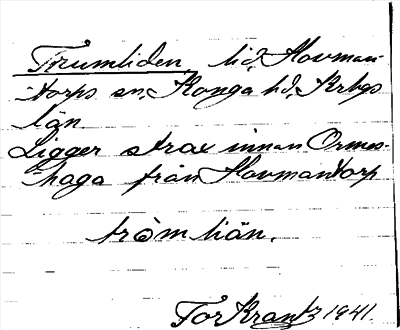 Trumliden, lid, Hovman-
torps sn, Konga hd, Krbgs
län
Ligger strax innan Ormes-
haga från Hovmantorp
tròmlián.
Tor Krantz 1941.